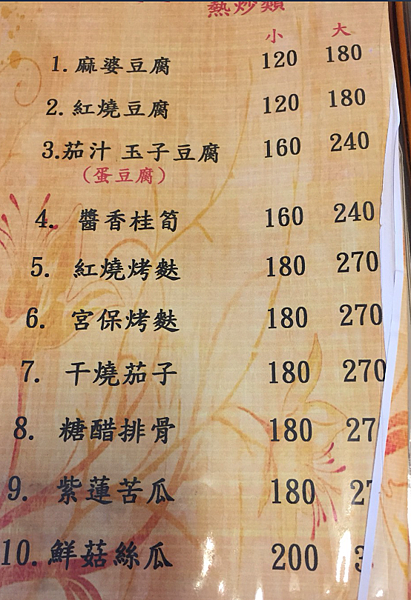 熱炒類
小 大
1. 麻婆豆腐 120 180
2. 紅燒豆腐 120 180
3.茄汁 玉子豆腐 160 240
(蛋豆腐)
4. 醬香桂筍 160 240
5. 紅燒烤麩 180 270
6. 宮保烤麩 180 270
7. 干燒茄子 180 270
8. 糖醋排骨 180 27
9. 紫蓮苦瓜 180 2
10. 鮮菇絲瓜 200